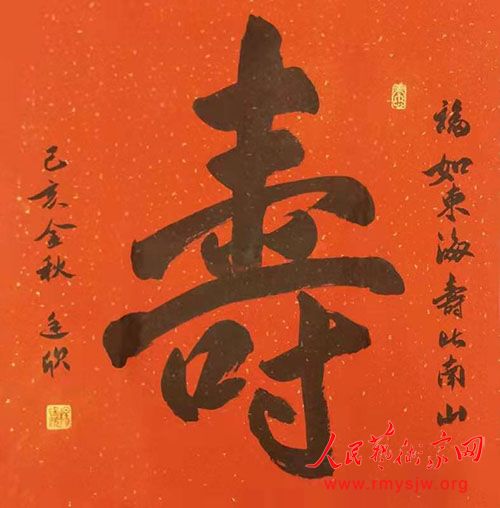 福如東海壽比南山
壽
己亥金秋
人民藝術家网
www.rmysjw.org